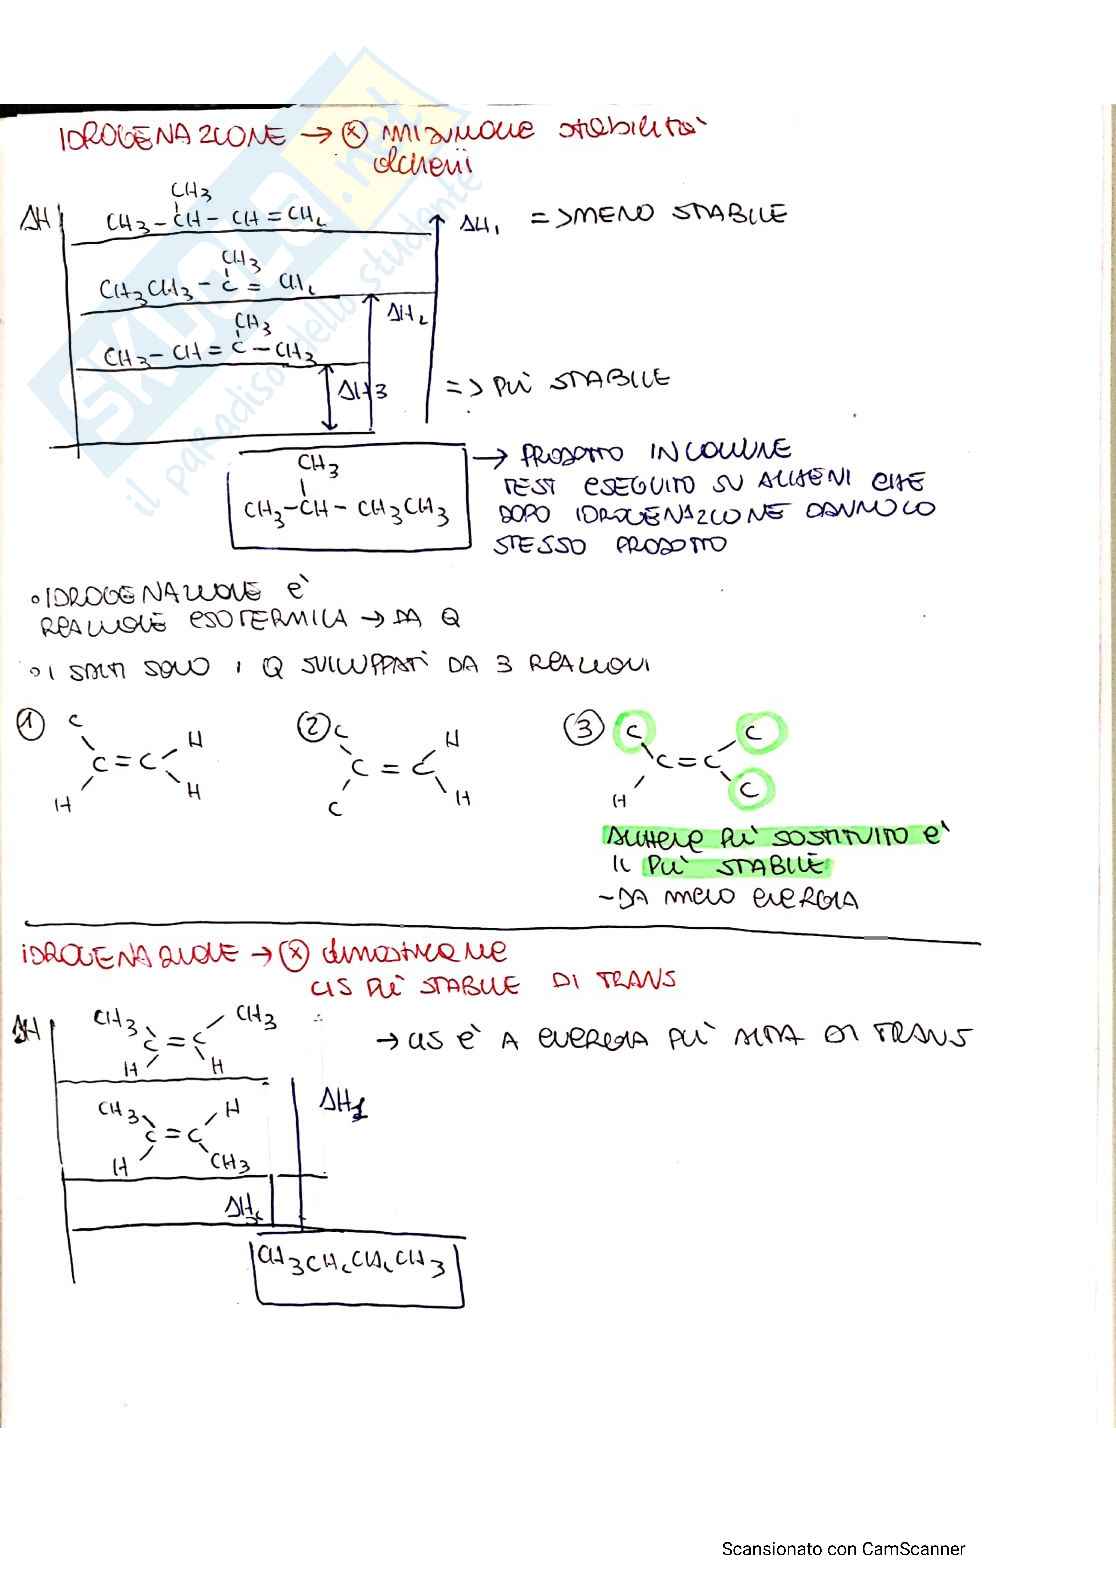 IDROGENAZIONE → ⊗ misurare stabilità
alcheni
CH3
ΔH CH3-CH-CH=CH2 ΔH1 => MENO STABILE
CH3
CH3CH3-C=CH2
ΔH2
CH3
CH3-CH=C-CH3
ΔH3 => PIÙ STABILE
→ PRODOTTO IN COMUNE
CH3
TEST ESEGUITO SU ALCHENI CHE
CH3-CH-CH3CH3 DOPO IDROGENAZIONE DANNO LO
STESSO PRODOTTO
• IDROGENAZIONE È
REAZIONE ESOTERMICA → DA Q
• I SALTI SONO I Q SVILUPPATI DA 3 REAZIONI
① C H ② C H ③ C C
C=C C=C C=C
H H C H H C
ALCHENE PIÙ SOSTITUITO È
IL PIÙ STABILE
- DA MENO ENERGIA
IDROGENAZIONE → ⊗ dimostrare
CIS PIÙ STABILE DI TRANS
ΔH CH3 CH3
C=C → CIS È A ENERGIA PIÙ ALTA DI TRANS
H H
CH3 H ΔH1
C=C
H CH3
ΔH2
CH3CH2CH2CH3
SKUOLA.net
il paradiso dello studente
Scansionato con CamScanner